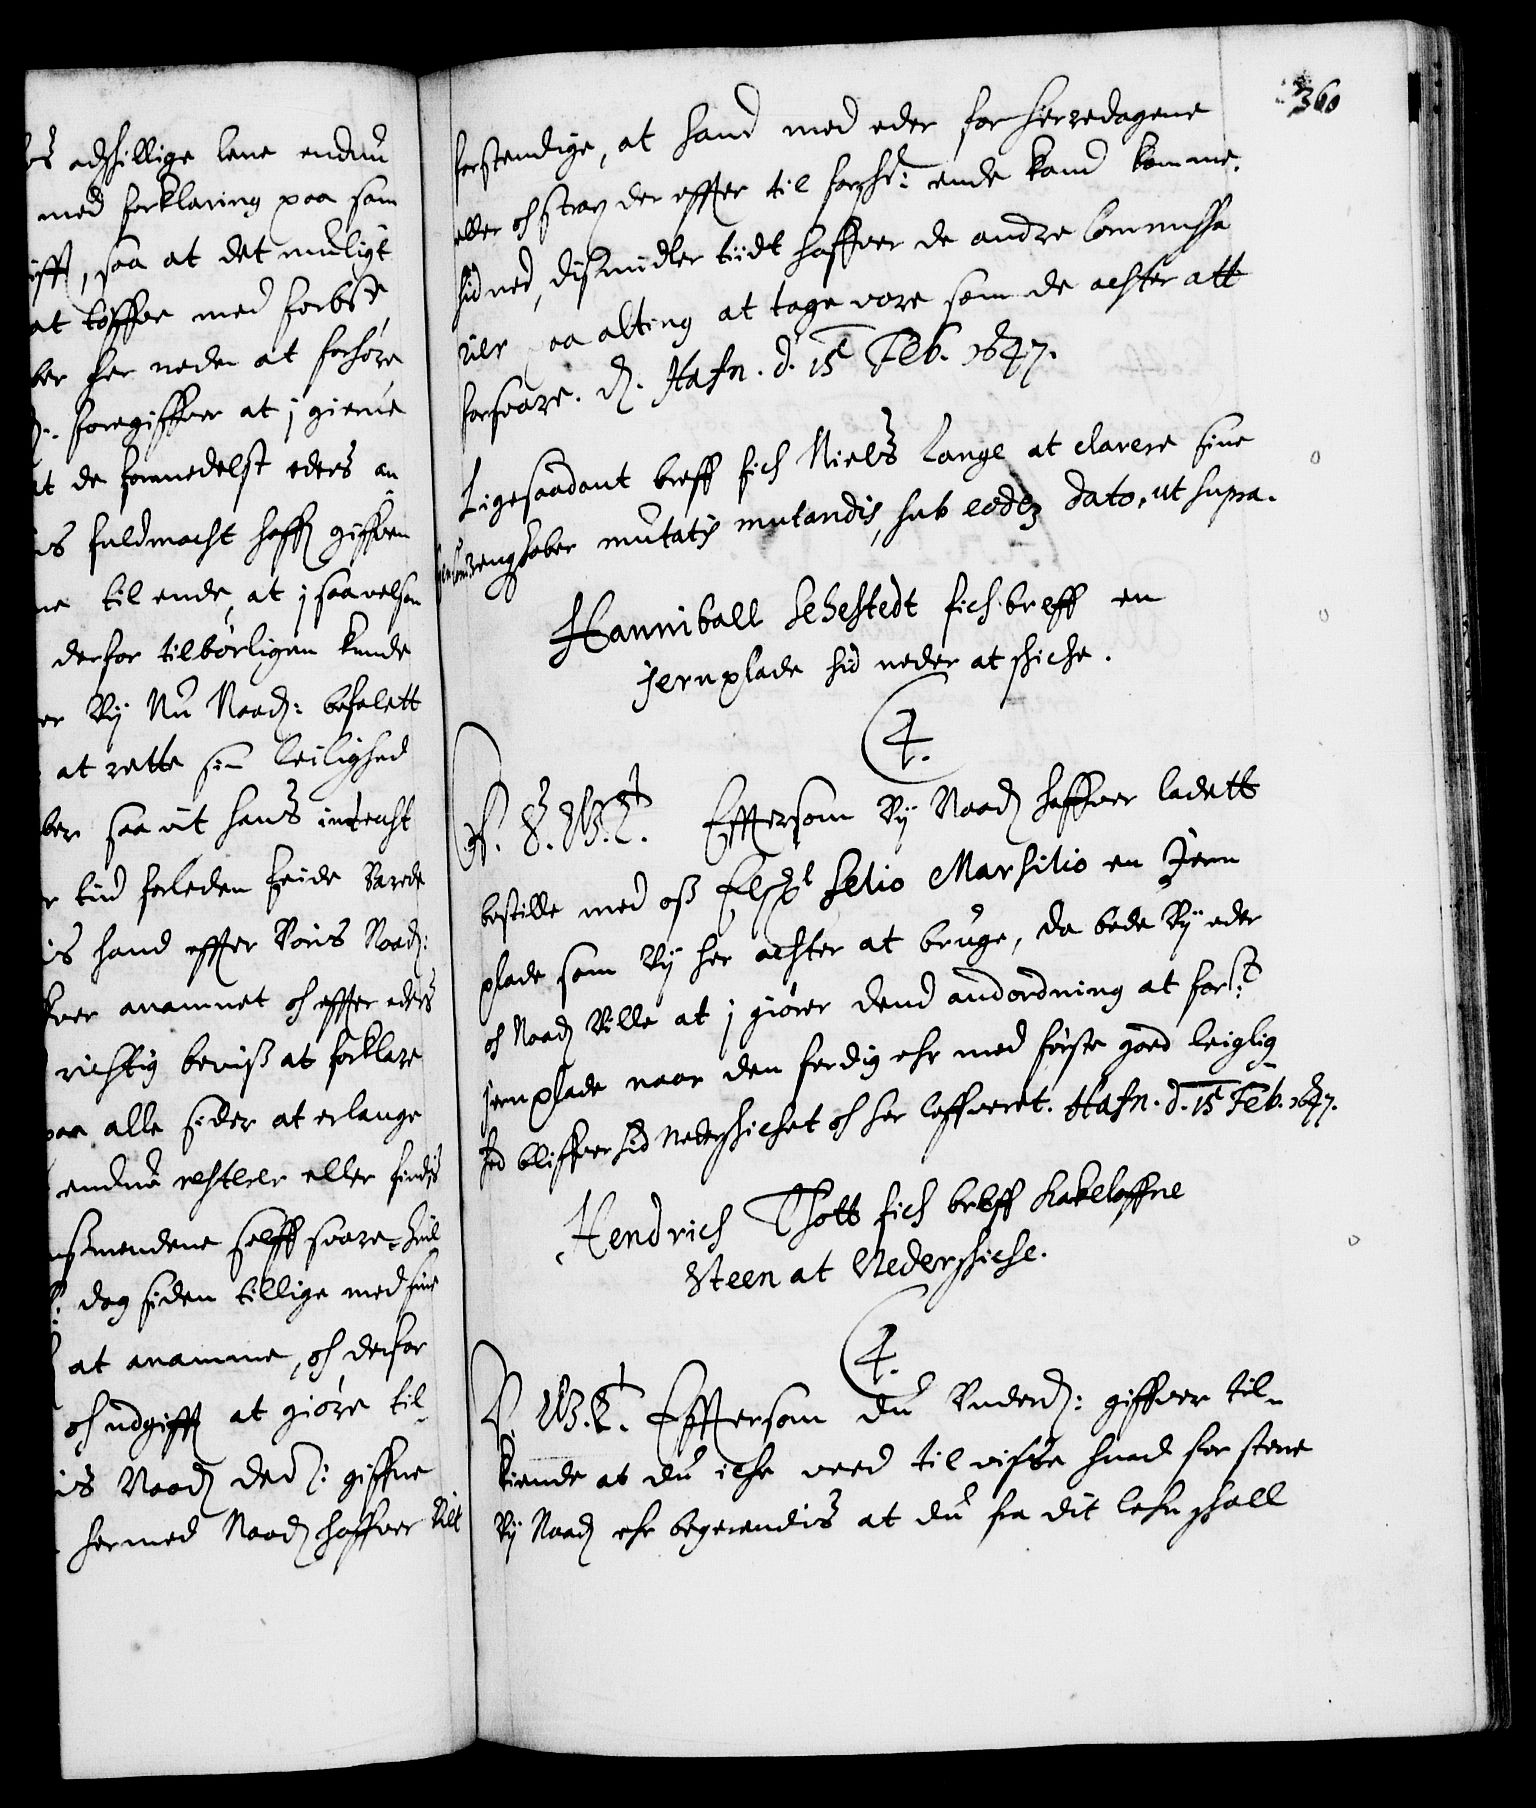 adschillige lene endnu
med forklaring paa som
, saa at det muligt
at töffve med forbe:de
her neden at forhöre
foregiffver at j gierne
at de formedelst eders an
fuldmacht haffr giffven
til ende, at j saavelsom
derfor tilbörligen kunde
Vy Nu Naad: befalett
at rette sin leilighed
saa vit hans indtecht
tiid forleden
hand effter Voris Naad:
anammet och effter eders
richtig beviss at forklare
paa alle sider at erlange
endnu resterer eller findis
mendene selff svare, huil
dag siden tillige med sine
at anamme, och derfor
och udgifft at giöre til-
Naad: der: giffve
hermed Naad: haffver Vilt
360
forstendige, at hand med eder for herredagene
eller och strax der effter til forschr: ende kand komme
hid ned, dismidler tiidt haffver de andre Commissa
rier paa alting at tage vare som de achter att
forsvare. d. Hafn. d. 15 Feb. 1647.
Ligesaadant breff fich Niels Lange at clarere sine
rengschaber mutatis mutandis, sub eodem dato, ut supra.
Hanniball Sehestedt fich breff en
jernplade hid neder at schiche.
C4.
C4. V.S.W.G.T. Efftersom Vy Naad: haffver ladett
bestille med oss Elschl Selio Marsilio en Jern
plade som Vy her achter at bruge, da bede Vy eder
och Naad: Ville at j giörer dend andordning at forsc:t
jernplade naar den ferdig ehr med förste goed leiglig-
hed bliffver hid nederschichet och her leffveret. Hafn. d. 15 Feb. 1647.
Hendrich Thott fich breff kakeloffne
steen at Nederschiche.
C4.
V. W.G.T. Efftersom du Underd: giffver til-
kiende at du iche veed til visse huad for stene
Vy Naad: ehr begerendis at du fra dit lehn schall